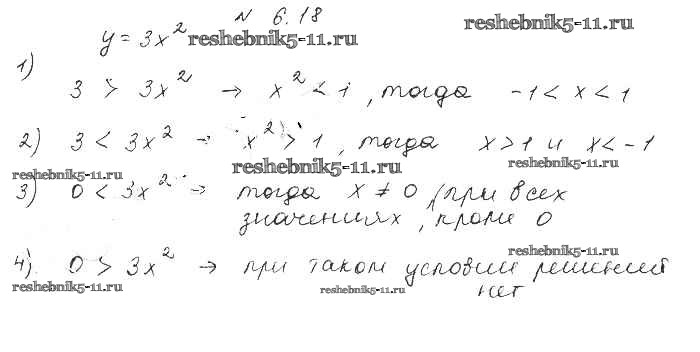 N 6.18
reshebnik5-11.ru
y = 3x² reshebnik5-11.ru
1)
3 > 3x² → x² < 1, тогда -1 < x < 1
2) 3 < 3x² → x² > 1, тогда x > 1 и x < -1
reshebnik5-11.ru reshebnik5-11.ru reshebnik5-11.ru
3) 0 < 3x² → тогда x ≠ 0 (при всех
значениях, кроме 0
reshebnik5-11.ru
4) 0 > 3x² → при таком условии решений
нет
reshebnik5-11.ru reshebnik5-11.ru